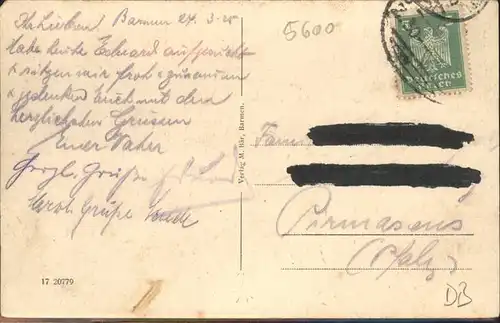 Ihr Lieben Barmen 24.3.25
Habe heute Eduard aufgesucht
+ sitzen wir froh zusammen
+ gedenken Euch mit den
herzlichsten Grüssen
Euer Vater
Herzl. Grüße
Grüße
5600
Deutsches
Reich
Verlag M. Bär, Barmen.
Pirmasens
(Pfalz)
17 20779
DB